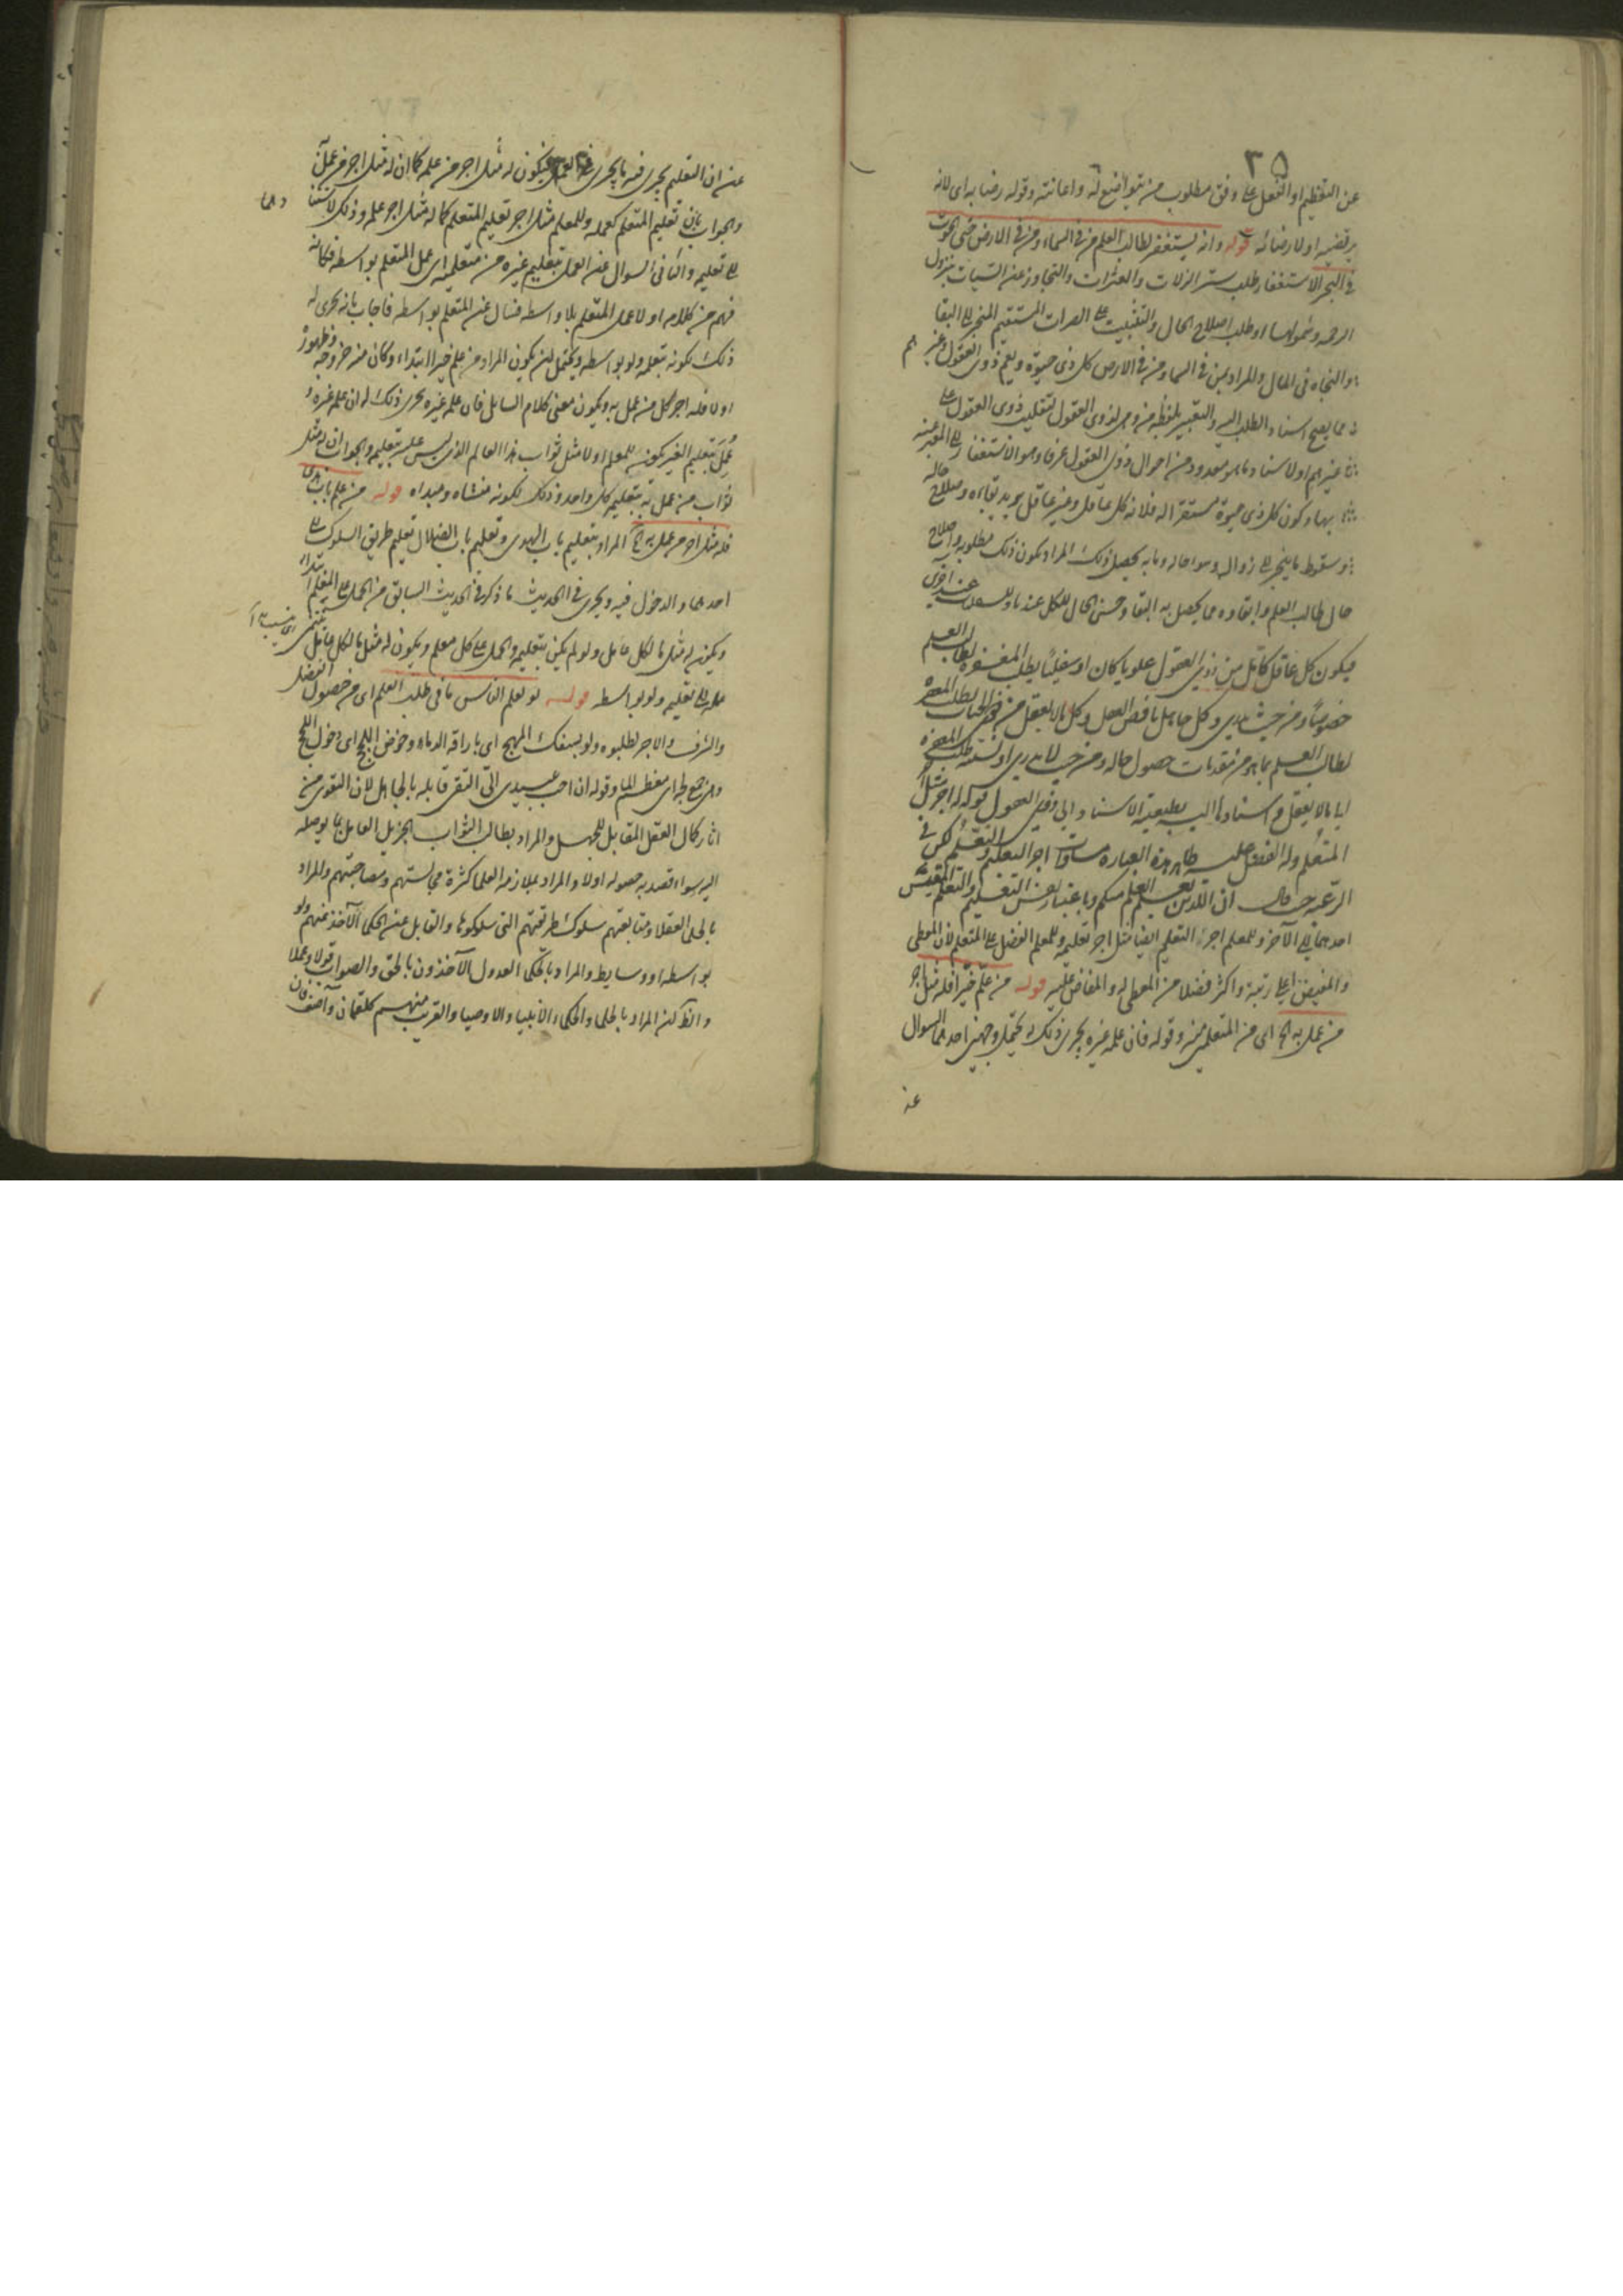 ٣٥
عن التعظيم او الفعل على وفق مطلوب من يتواضع له واعانته وقوله رضا به اى لانه
يرتضيه او لارضائه قوله وانه يستغفر لطالب العلم من فى السماء ومن فى الارض حتى الحوت
فى البحر الاستغفار طلب ستر الزلات والعثرات والتجاوز عن السيئات بنزول
الرحمه وشمولها او طلب اصلاح الحال والتثبيت على الصراط المستقيم المنجر الى البقا
والنجاه فى المال والمراد بمن فى السما ومن فى الارض كل ذى حيوة ويعم ذوى العقول وغيرهم
مما يصح اسناد الطلب اليه والتعبير بلفظه من وهى لذوى العقول لتغليب ذوى العقول على
غيرهم او لاسناد ما هو معدود من احوال ذوى العقول عرفا وهو الاستغفار الى المعبر عنه
بها وكون كل ذى حيوة مستغفرا له فلانه كل عاقل وغير عاقل يريد بقاءه وصلاح حاله
وسقوط ما ينجر الى زواله وسوء حاله وما به يحصل ذلك المراد يكون ذلك مطلوبه واصلاح
حال طالب العلم وابقاوه مما يحصل به البقا وحسن الحال للكل عند
فيكون كل عاقل كامل من ذوى العقول علويا كان او سفليا يطلب المغفره لطالب العلم
خصوصا ومن حيث يدرى وكل جاهل ناقص العقل وكل ما لا يعقل من يطلب المغفره
لطالب العلم بما هو من مقدمات حصول حاله ومن حيث لا يدرى او طلب المغفره
ايا ما لا يعقل اسناده اليه الاسناد الى ذوى العقول قوله له اجر مثل
المتعلم وله الفضل عليه ظاهر هذه العباره مساوات اجر التعليم والتعلم لكن فى
الترغيب حيث قال ان الذى يعلم العلم منكم وباعتبار نفس التعليم والتعلم المقيس
احدهما الى الآخر وللمعلم اجر التعليم ايضا مثل اجر تعليمه وللمعلم الفضل على المتعلم لان المعطى
والمفيض اعلى رتبة واكثر فضلا من المعطى له والمفاض عليه قوله من علم خيرا فله مثل اجر
من عمل به الخ اى من المتعلمين وقوله فان علمه غيره يجرى ذلك له يحتمل وجهين احدهما السوال
عن
عن ان التعليم يجرى فيه ما يجرى فى العمل فيكون له مثل اجر من علمه كما ان له مثل اجر من عمل
والجواب بان تعليم المتعلم كعمله وللمعلم مثل اجر تعليم المتعلم كما له مثل اجر عمله وذلك لاستنادهما
الى تعليمه والثانى السوال عن العمل بتعليم غيره من متعلميه اى عمل المتعلم بواسطه فكانه
فهم من كلامه اولا عمل المتعلم بلا واسطه فسال عن المتعلم بواسطه فاجاب بانه يجرى له
ذلك لكونه بتعلمه ولو بواسطه ويحتمل ان يكون المراد من علم خيرا ابتداء وكان منه خروجه وظهوره
اولا فله اجر كل من عمل به ويكون معنى كلام السايل فان علمه غيره يجرى ذلك له ان علمه غيره و
عمل بتعليم الغير يكون للمعلم اولا مثل ثواب هذا العالم الذى ليس علمه بتعليمه والجواب ان له مثل
ثواب من عمل به بتعليم كل واحد وذلك لكونه منشاه ومبداه قوله من علم باب هدى
فله مثل اجر من عمل به الخ المراد بتعليم باب الهدى وتعليم باب الضلال تعليم طريق السلوك الى
احدهما والدخول فيه ويجرى فى الحديث ما ذكر فى الحديث السابق من الحمل على المعلم ابتداء
ويكون له مثل ما لكل عامل ولو لم يكن بتعليمه والحمل على كل معلم ويكون له مثل ما لكل عامل ينتهى
عمله الى تعليمه ولو بواسطه قوله لو يعلم الناس ما فى طلب العلم اى من حصول الفضل
والشرف والاجر لطلبوه ولو بسفك المهج اى باراقه الدماء وخوض اللجج اى دخول اللجج
وهى جمع لجه اى معظم الما وقوله ان احب عبيدى الىّ التقى قابله بالجاهل لان التقوى من
اثار كمال العقل المقابل للجهل والمراد بطالب الثواب الجزيل العامل بما يوصله
اليه سواء قصد به حصوله اولا والمراد بملازمه العلما كثرة مجالستهم ومصاحبتهم والمراد
بالحلما العقلا ومتابعتهم سلوك طريقتهم التى سلكوها والقابل عن الحكما الآخذ عنهم ولو
بواسطه او وسايط والمراد بالحكما العدول الآخذون بالحق والصواب قولا وعملا
والظ كون المراد بالحلما والحكما الانبيا والاوصيا والقريب منهم كلقمان وآصف فان